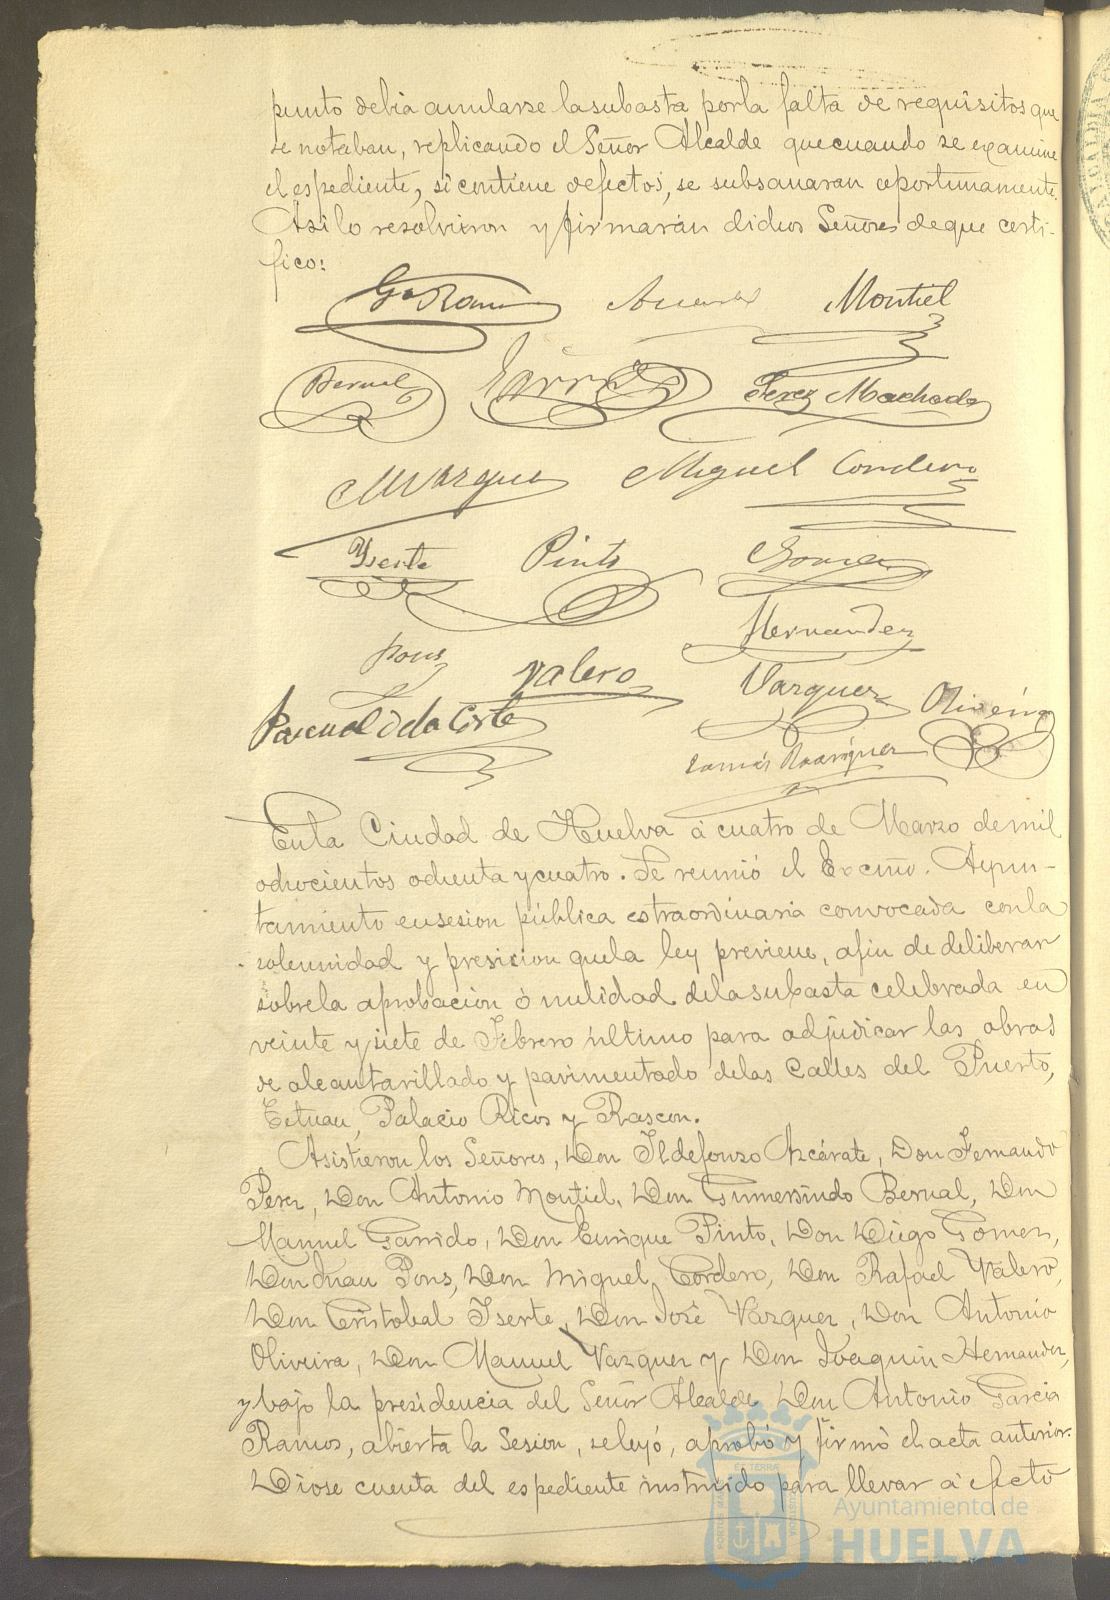 punto debia anularse la subasta por la falta de requisitos que
se notaban, replicando el Señor Alcalde que cuando se examine
el espediente, si contiene defectos, se subsanaran oportunamente.
Asi lo resolvieron y firmarán dichos Señores de que certi-
fico:
Gª Ramos Montiel
Bernal Garrido Perez Machado
M Vazquez Miguel Cordero
Yserte Pinto Gomez
Hernandez
Pons Valero Vazquez Oliveira
Pascual de la Corte
Tomás Rodriguez
En la Ciudad de Huelva á cuatro de Marzo de mil
ochocientos ochenta y cuatro. Se reunió el Excmo. Ayun-
tamiento en sesion pública estraordinaria convocada con la
solemnidad y presicion que la ley previene, afin de deliberar
sobre la aprobacion ó nulidad de la subasta celebrada en
veinte y siete de Febrero último para adjudicar las obras
de alcantarillado y pavimentado de las Calles del Puerto,
Tetuan, Palacio Ricos y Rascon.
Asistieron los Señores, Don Ildefonzo Azcárate, Don Fernando
Perez, Don Antonio Montiel, Don Gumersindo Bernal, Don
Manuel Garrido, Don Enrique Pinto, Don Diego Gomez,
Don Juan Pons, Don Miguel Cordero, Don Rafael Valero,
Don Cristobal Iserte, Don José Vazquez, Don Antonio
Oliveira, Don Manuel Vazquez y Don Joaquin Hernandez,
y bajo la presidencia del Señor Alcalde Don Antonio Garcia
Ramos, abierta la Sesion, se leyó, aprobó y firmó el acta anterior.
Diose cuenta del espediente instruido para llevar á efecto
Ayuntamiento de
HUELVA